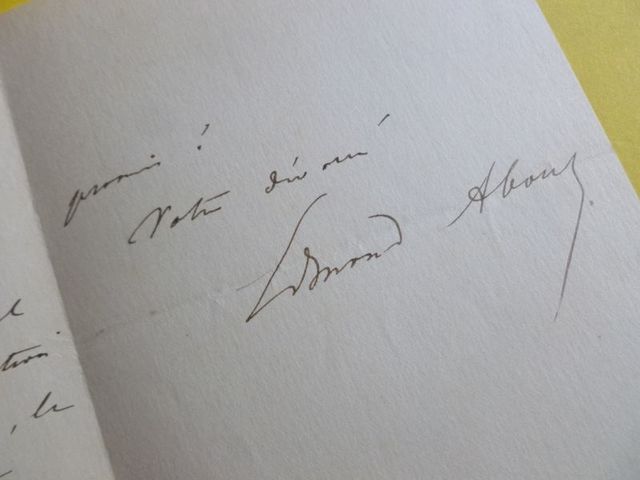 promis !
Votre dévoué
Edmond About.
l
tion
, le